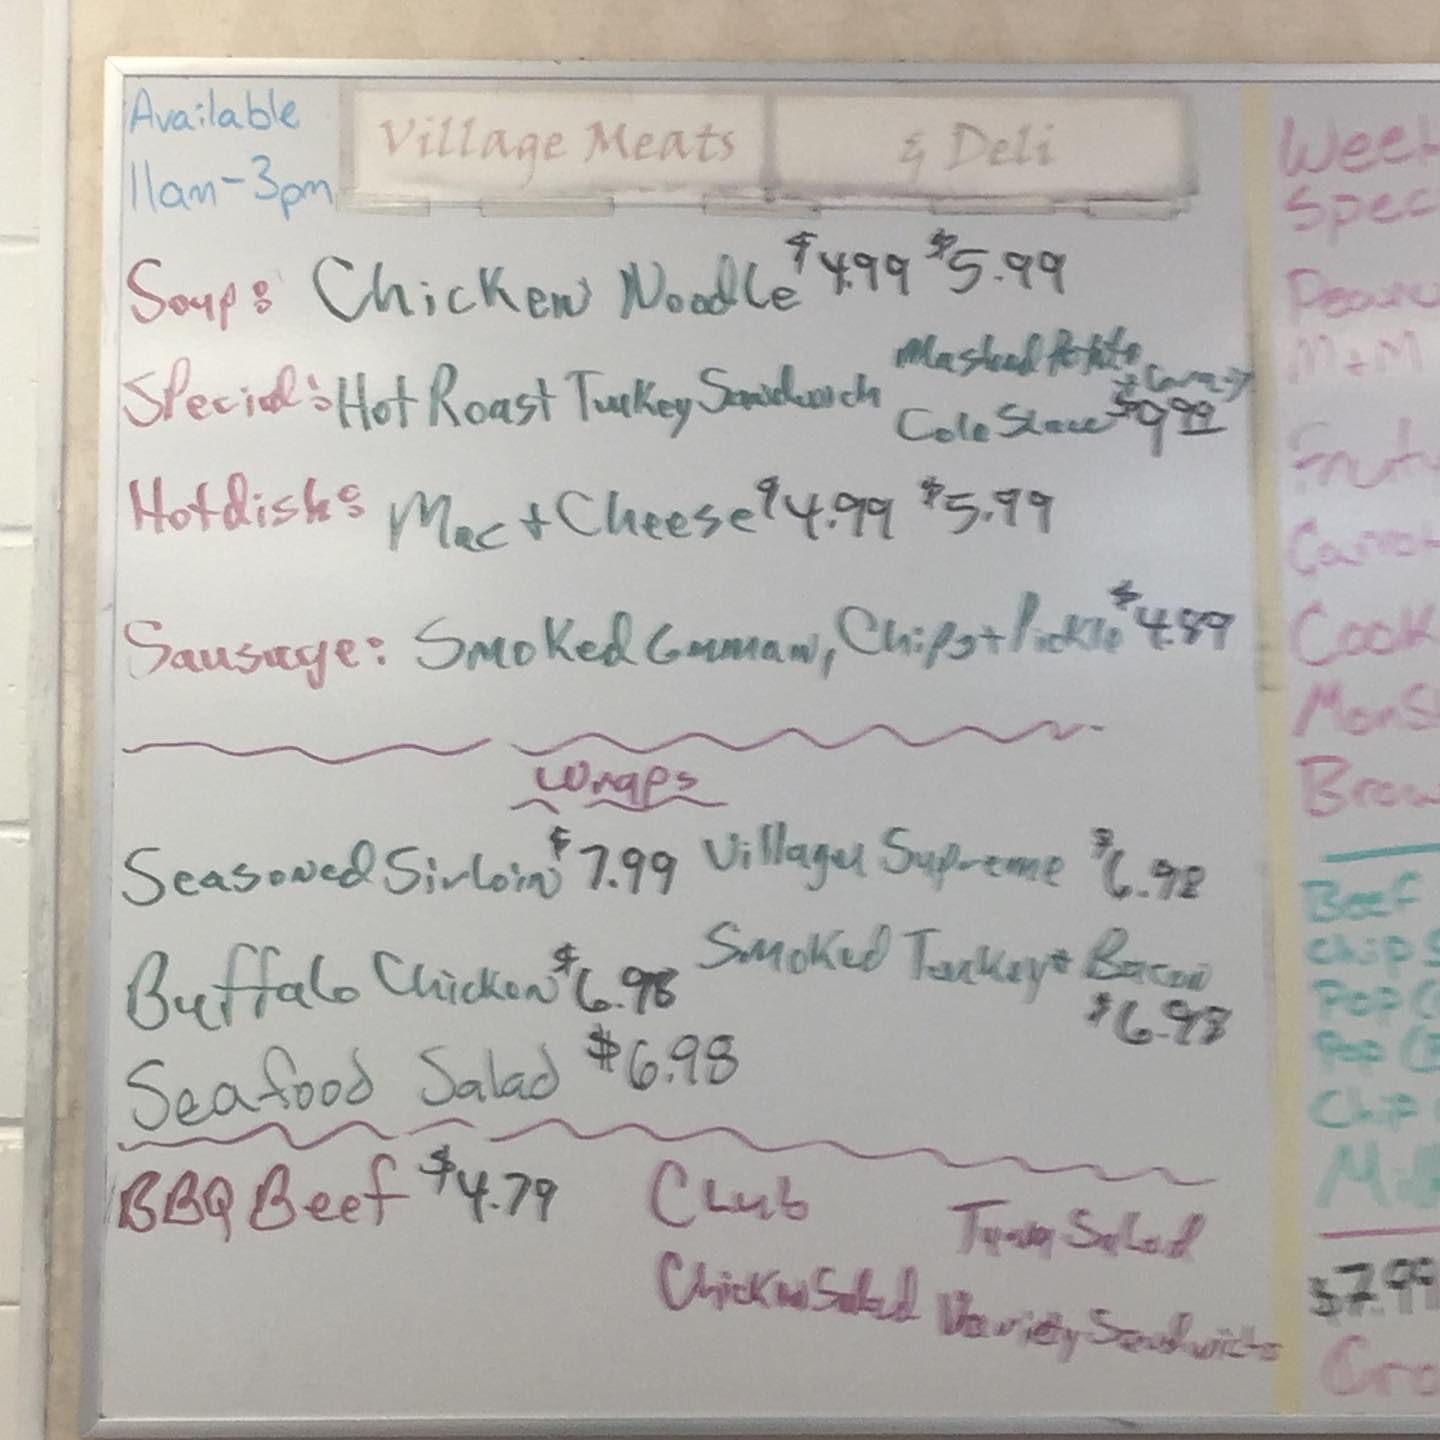 Available
11am-3pm
Village Meats & Deli
Soup: Chicken Noodle $4.99 $5.99
Special: Hot Roast Turkey Sandwich
Mashed Potato
+ Gravy
Cole Slaw $9.99
Hotdish: Mac + Cheese $4.99 $5.99
Sausage: Smoked German, Chips + Pickle $4.89
Wraps
Seasoned Sirloin $7.99 Villager Supreme $6.98
Buffalo Chicken $6.98 Smoked Turkey + Bacon
$6.98
Seafood Salad $6.98
BBQ Beef $4.79 Club Tuna Salad
Chicken Salad Variety Sandwichs
Week
Spec
M+M
Fruit
Carrot
Cook
Monst
Brow
Beef
Chip S
Pop (
Pop (
Chip
Mil
$7.99
Gro